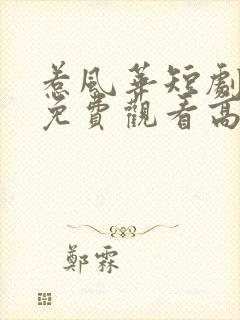 惹風華短劇
免費觀看高
鄭霖